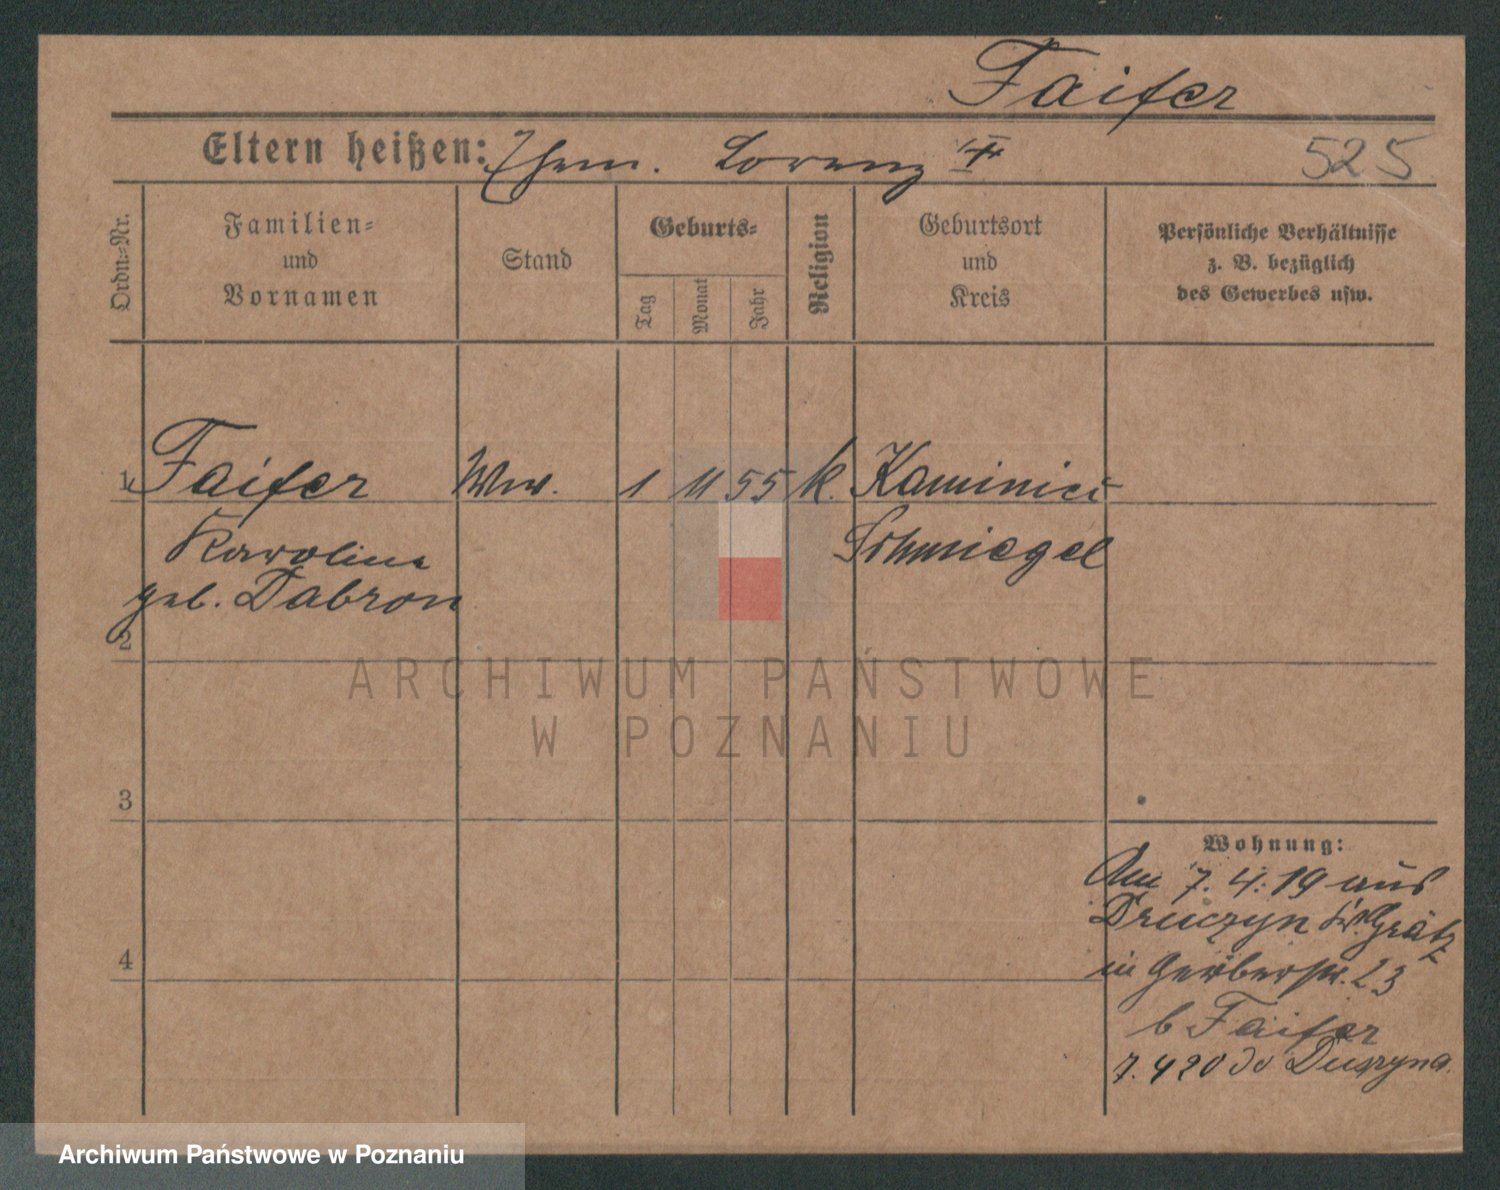 Faifer
Eltern heißen: Ehem. Lorenz
525
Ordn.-Nr.
Familien-
und
Vornamen
Stand
Geburts-
Tag
Monat
Jahr
Religion
Geburtsort
und
Kreis
Persönliche Verhältnisse
z. B. bezüglich
des Gewerbes usw.
1 Faifer Ww. 1 11 55 k. Kaminiec
Karolina Schmiegel
geb. Dabron
2
ARCHIWUM PAŃSTWOWE
W POZNANIU
3
Wohnung:
Am 7. 4. 19 aus
Druczyn Kr. Grätz
4
in Gerberstr. 23
b Faifer
7. 4 20 do Duszyna.
Archiwum Państwowe w Poznaniu